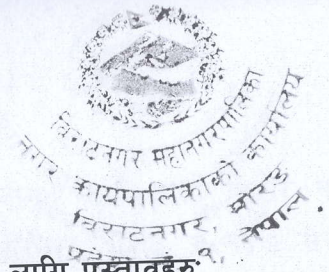 विराटनगर महानगरपालिका
नगर कार्यपालिकाको कार्यालय
विराटनगर, मोरङ
नेपाल
लागि प्रस्तावहरुः